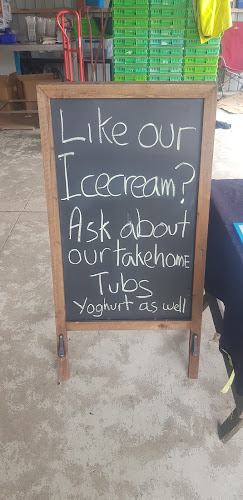 Like our
Icecream?
Ask about
our takehome
Tubs
Yoghurt as well